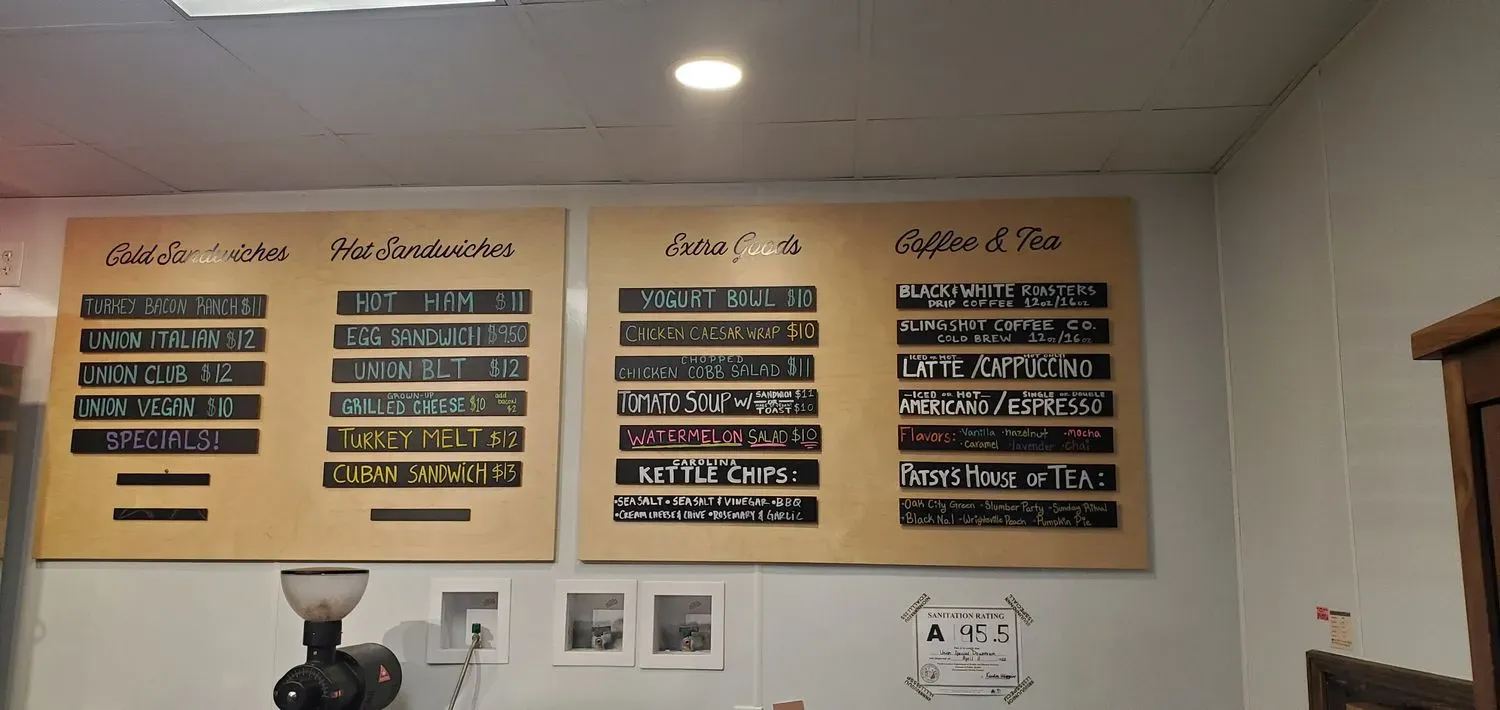 Cold Sandwiches
TURKEY BACON RANCH $11
UNION ITALIAN $12
UNION CLUB $12
UNION VEGAN $10
SPECIALS!
Hot Sandwiches
HOT HAM $11
EGG SANDWICH $9.50
UNION BLT $12
GROWN-UP
GRILLED CHEESE $10 add bacon $2
TURKEY MELT $12
CUBAN SANDWICH $13
Extra Goods
YOGURT BOWL $10
CHICKEN CAESAR WRAP $10
CHOPPED
CHICKEN COBB SALAD $11
TOMATO SOUP W/ SANDWICH $11
TOAST $10
WATERMELON SALAD $10
CAROLINA
KETTLE CHIPS:
•SEA SALT •SEA SALT & VINEGAR •BBQ
•CREAM CHEESE & CHIVE •ROSEMARY & GARLIC
Coffee & Tea
BLACK & WHITE ROASTERS
DRIP COFFEE 12oz/16oz
SLINGSHOT COFFEE CO.
COLD BREW 12oz/16oz
ICED OR HOT HOT ONLY
LATTE / CAPPUCCINO
ICED OR HOT SINGLE OR DOUBLE
AMERICANO / ESPRESSO
Flavors: •Vanilla •hazelnut •mocha
•caramel •lavender •chai
PATSY'S HOUSE OF TEA:
-Oak City Green -Slumber Party -Sunday Ritual
-Black No.1 -Wrightsville Peach -Pumpkin Pie
SANITATION RATING
A 95.5
Union Special Downtown
April